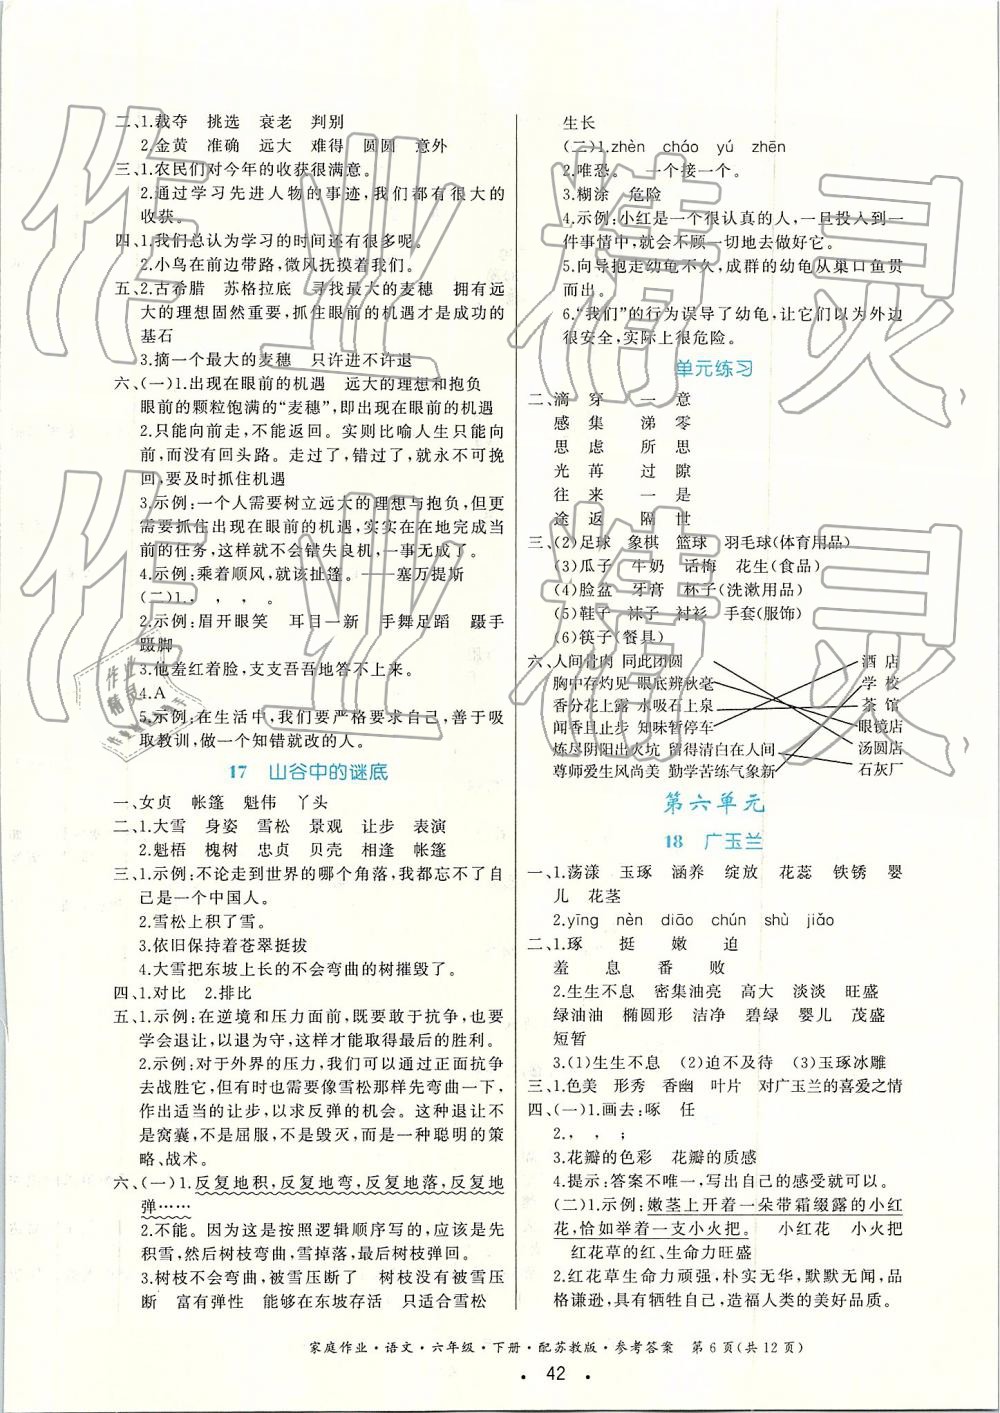 二、1.裁夺　挑选　衰老　判别
2.金黄　准确　远大　难得　圆圆　意外
三、1.农民们对今年的收获很满意。
2.通过学习先进人物的事迹,我们都有很大的
收获。
四、1.我们总认为学习的时间还有很多呢。
2.小鸟在前边带路,微风抚摸着我们。
五、2.古希腊　苏格拉底　寻找最大的麦穗　拥有远
大的理想固然重要,抓住眼前的机遇才是成功的
基石
3.摘一个最大的麦穗　只许进不许退
六、(一)1.出现在眼前的机遇　远大的理想和抱负
眼前的颗粒饱满的“麦穗”,即出现在眼前的机遇
2.只能向前走,不能返回。实则比喻人生只能向
前,而没有回头路。走过了,错过了,就永不可挽
回,要及时抓住机遇
3.示例:一个人需要树立远大的理想与抱负,但更
需要抓住出现在眼前的机遇,实实在在地完成当
前的任务,这样就不会错失良机,一事无成了。
4.示例:乘着顺风,就该扯篷。——塞万提斯
(二)1.，　，　，　。
2.示例:眉开眼笑　耳目一新　手舞足蹈　蹑手
蹑脚
3.他羞红着脸,支支吾吾地答不上来。
4.A
5.示例:在生活中,我们要严格要求自己,善于吸
取教训,做一个知错就改的人。
17　山谷中的谜底
一、女贞　帐篷　魁伟　丫头
二、1.大雪　身姿　雪松　景观　让步　表演
2.魁梧　槐树　忠贞　贝壳　相逢　帐篷
三、1.示例:不论走到世界的哪个角落,我都不会忘了自
己是一个中国人。
2.雪松上积了雪。
3.依旧保持着苍翠挺拔
4.大雪把东坡上长的不会弯曲的树摧毁了。
四、1.对比　2.排比
五、1.示例:在逆境和压力面前,既要敢于抗争,也要
学会退让,以退为守,这样才能取得最后的胜利。
2.示例:对于外界的压力,我们可以通过正面抗争
去战胜它,但有时也需要像雪松那样先弯曲一下,
作出适当的让步,以求反弹的机会。这种退让不
是窝囊,不是屈服,不是毁灭,而是一种聪明的策
略、战术。
六、(一)1.反复地积,反复地弯,反复地落,反复地
弹……
2.不能。因为这是按照逻辑顺序写的,应该是先
积雪,然后树枝弯曲,雪掉落,最后树枝弹回。
3.树枝不会弯曲,被雪压断了　树枝没有被雪压
断　富有弹性　能够在东坡存活　只适合雪松
生长
(二)1.zhèn　cháo　yú　zhēn
2.唯恐。　一个接一个。
3.糊涂　危险
4.示例:小红是一个很认真的人,一旦投入到一
件事情中,就会不顾一切地去做好它。
5.向导抱走幼龟不久,成群的幼龟从巢口鱼贯
而出。
6.“我们”的行为误导了幼龟,让它们以为外边
很安全,实际上很危险。
单元练习
二、滴　穿　一　意
感　集　涕　零
思　虑　所　思
光　苒　过　隙
往　来　一　是
途　返　隔　世
三、(2)足球　象棋　篮球　羽毛球(体育用品)
(3)瓜子　牛奶　话梅　花生(食品)
(4)脸盆　牙膏　杯子(洗漱用品)
(5)鞋子　袜子　衬衫　手套(服饰)
(6)筷子(餐具)
六、人间骨肉　同此团圆　酒店
胸中存灼见　眼底辨秋毫　学校
香分花上露　水吸石上泉　茶馆
闻香且止步　知味暂停车　眼镜店
炼尽阴阳出火坑　留得清白在人间　汤圆店
尊师爱生风尚美　勤学苦练气象新　石灰厂
第六单元
18　广玉兰
一、1.荡漾　玉琢　涵养　绽放　花蕊　铁锈　婴
儿　花茎
2.yīng　nèn　diāo　chún　shù　jiǎo
二、1.琢　挺　嫩　迫
羞　息　番　败
2.生生不息　密集油亮　高大　淡淡　旺盛
绿油油　椭圆形　洁净　碧绿　婴儿　茂盛
短暂
3.(1)生生不息　(2)迫不及待　(3)玉琢冰雕
三、1.色美　形秀　香幽　叶片　对广玉兰的喜爱之情
四、(一)1.画去:啄　任
2.，　，　；
3.花瓣的色彩　花瓣的质感
4.提示:答案不唯一,写出自己的感受就可以。
(二)1.示例:嫩茎上开着一朵带霜缀露的小红
花,恰如举着一支小火把。　小红花　小火把
红花草的红、生命力旺盛
2.红花草生命力顽强,朴实无华,默默无闻,品
格谦逊,具有牺牲自己,造福人类的美好品质。
家庭作业·语文·六年级·下册·配苏教版·参考答案　第6页(共12页)
· 42 ·
作业精灵
作业精灵